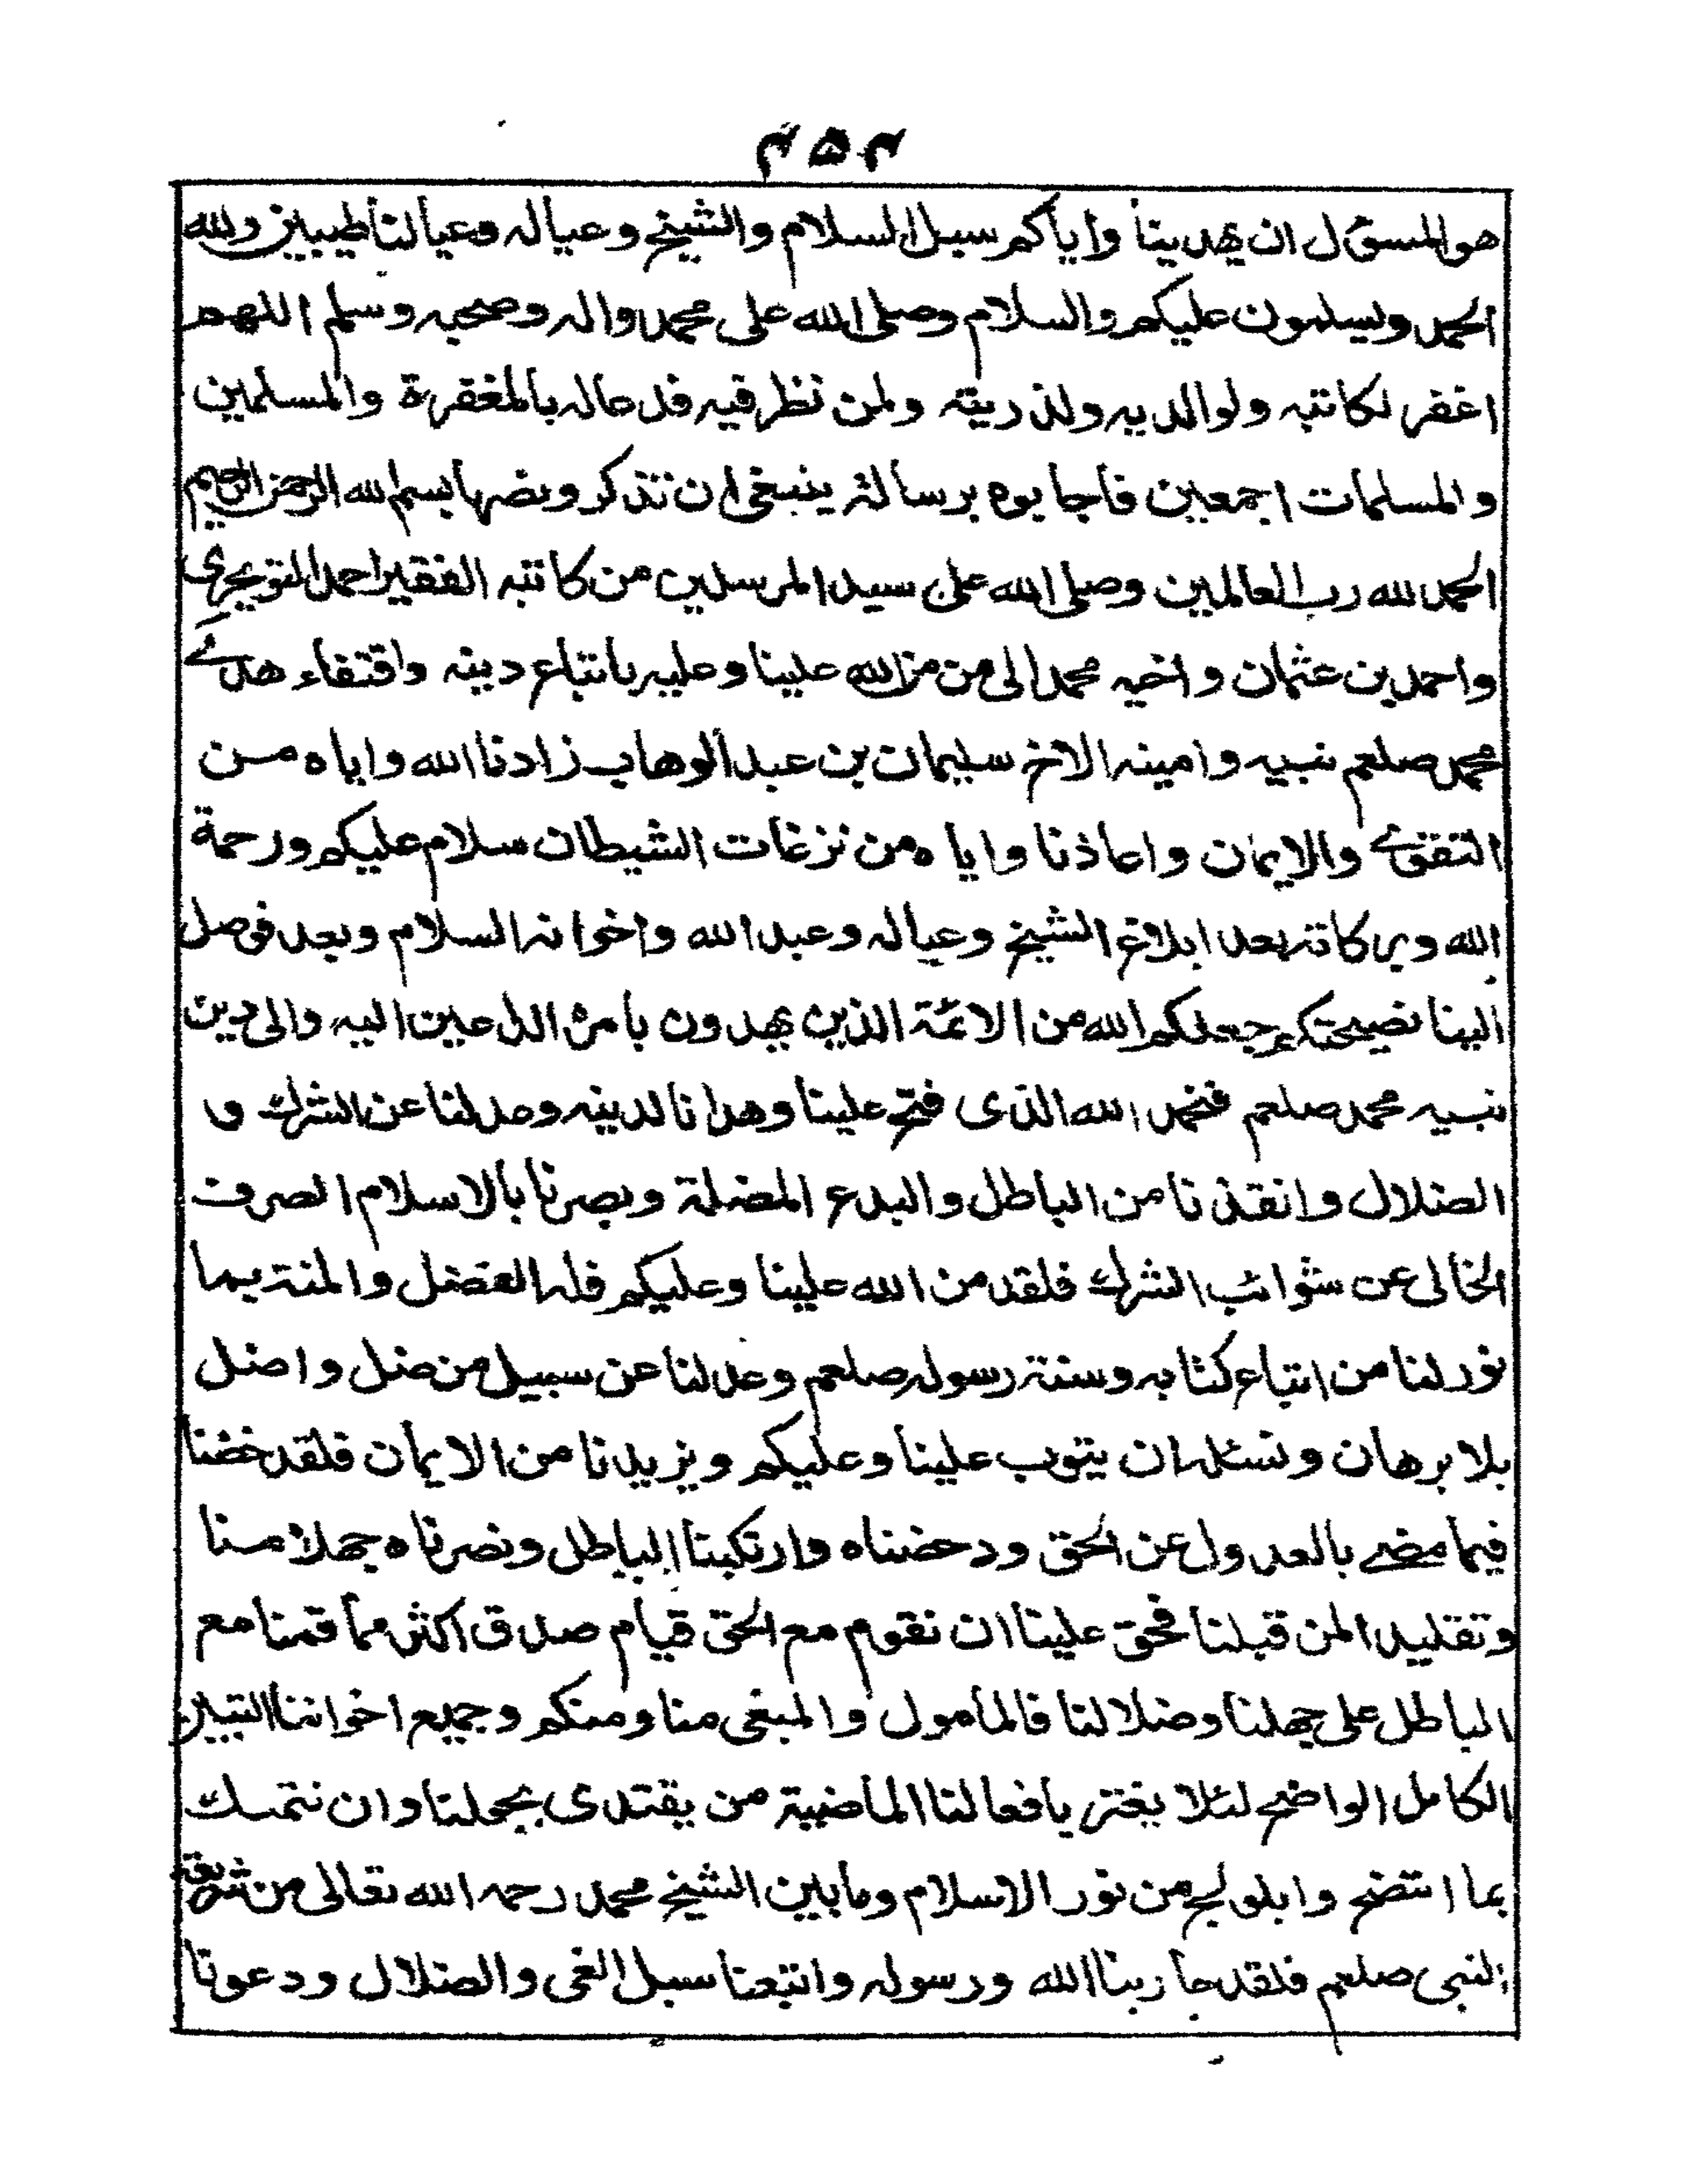 ۴۵۴
هو المسؤل ان يهدينا واياكم سبل السلام والشيخ وعياله وعيالنا طيبين ولله
الحمد ويسلمون عليكم والسلام وصلى الله على محمد واله وصحبه وسلم اللهم
اغفر لكاتبه ولوالديه ولذريته ولمن نظر فيه فدعاله بالمغفرة والمسلمين
والمسلمات اجمعين فاجابوه برسالة ينبغى ان تذكر ونصها بسم الله الرحمن الرحيم
الحمد لله رب العالمين وصلى الله على سيد المرسلين من كاتبه الفقير احمد التويجرى
واحمد بن عثمان واخيه محمد الى من من الله علينا وعليه باتباع دينه واقتفاء هدے
محمد صلعم نبيه وامينه الاخ سليمان بن عبد الوهاب زادنا الله واياه من
التقوے والايمان واعاذنا واياه من نزغات الشيطان سلام عليكم ورحمة
الله وبركاته بعد ابلاغ الشيخ وعياله وعبد الله واخوانه السلام وبعد فوصل
الينا نصيحتكم جعلكم الله من الائمة الذين يهدون بامره الداعين اليه والى دين
نبيه محمد صلعم فنحمد الله الذى فتح علينا وهدانا لدينه وعدلنا عن الشرك و
الضلال وانقذنا من الباطل والبدع المضلة وبصرنا بالاسلام الصرف
الخالى عن شوائب الشرك فلقد من الله علينا وعليكم فله الفضل والمنة بما
نور لنا من اتباع كتابه وسنة رسوله صلعم وعدلنا عن سبيل من ضل واضل
بلا برهان ونسئله ان يتوب علينا وعليكم ويزيدنا من الايمان فلقد خضنا
فيما مضے بالعدول عن الحق ودحضناه وارتكبنا الباطل ونصرناه جهلا منا
وتقليدا لمن قبلنا فحق علينا ان نقوم مع الحق قيام صدق اكثر مما قمنا مع
الباطل على جهلنا وضلالنا فالمأمول والمبغى منا ومنكم وجميع اخواننا التبيين
الكامل الواضح لئلا يغتر بافعالنا الماضية من يقتدى بجهلنا وان نتمسك
بما اتضح وابلولج من نور الاسلام وما بين الشيخ محمد رحمه الله تعالى من شريعة
النبى صلعم فلقد حاربنا الله ورسوله واتبعنا سبل الغى والضلال ودعونا